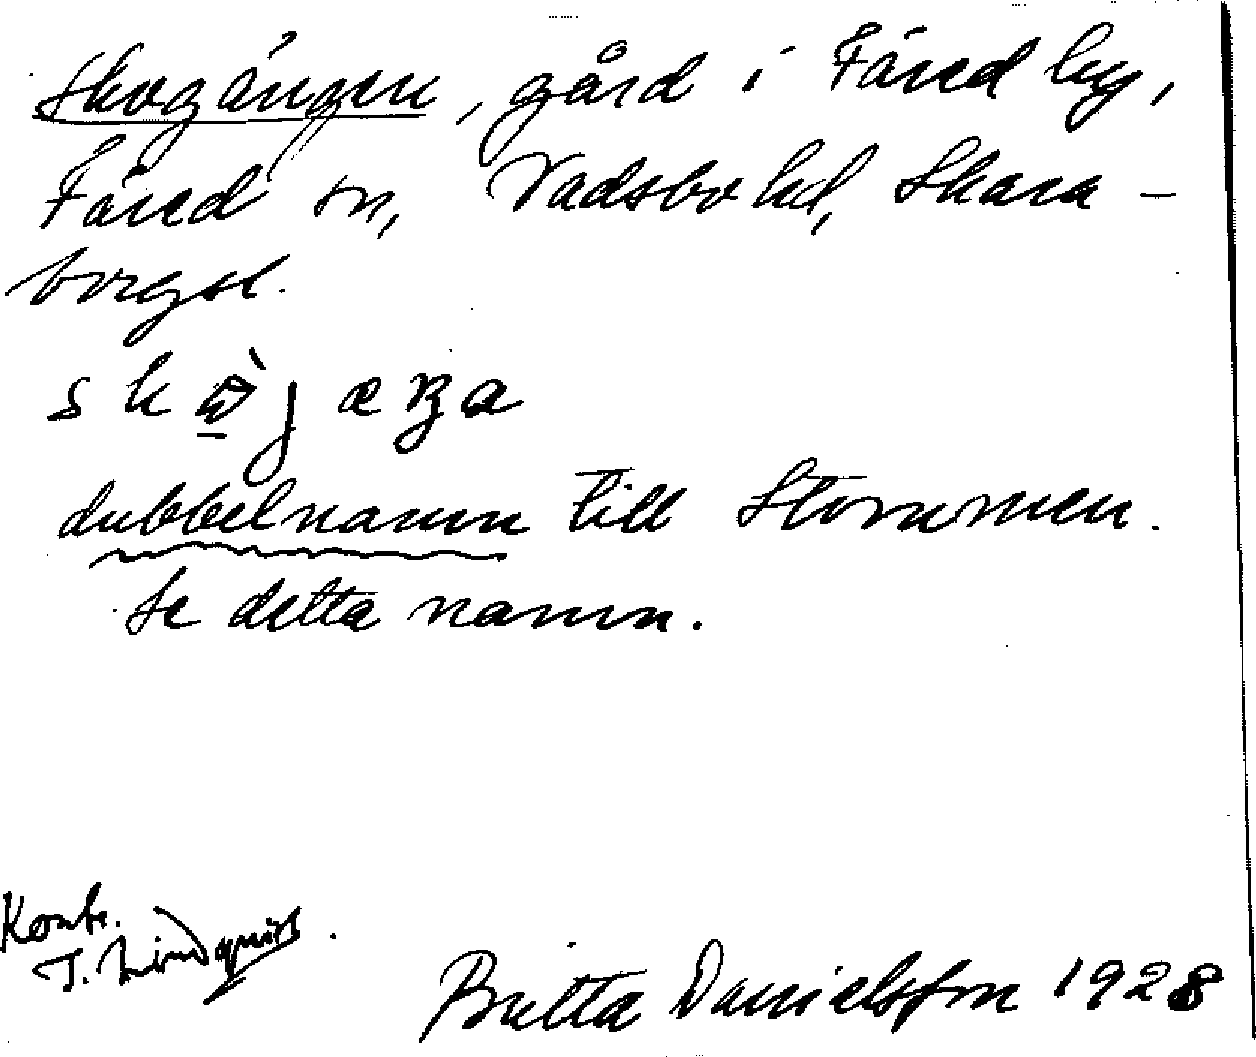 Skogängen, gård i Färed by,
Färed sn, Vadsbo hd, Skara-
borgsl.
dubbelnamn till Stommen.
Se detta namn.
Kontr.
T. Lindquist.
Britta Danielsson 1928